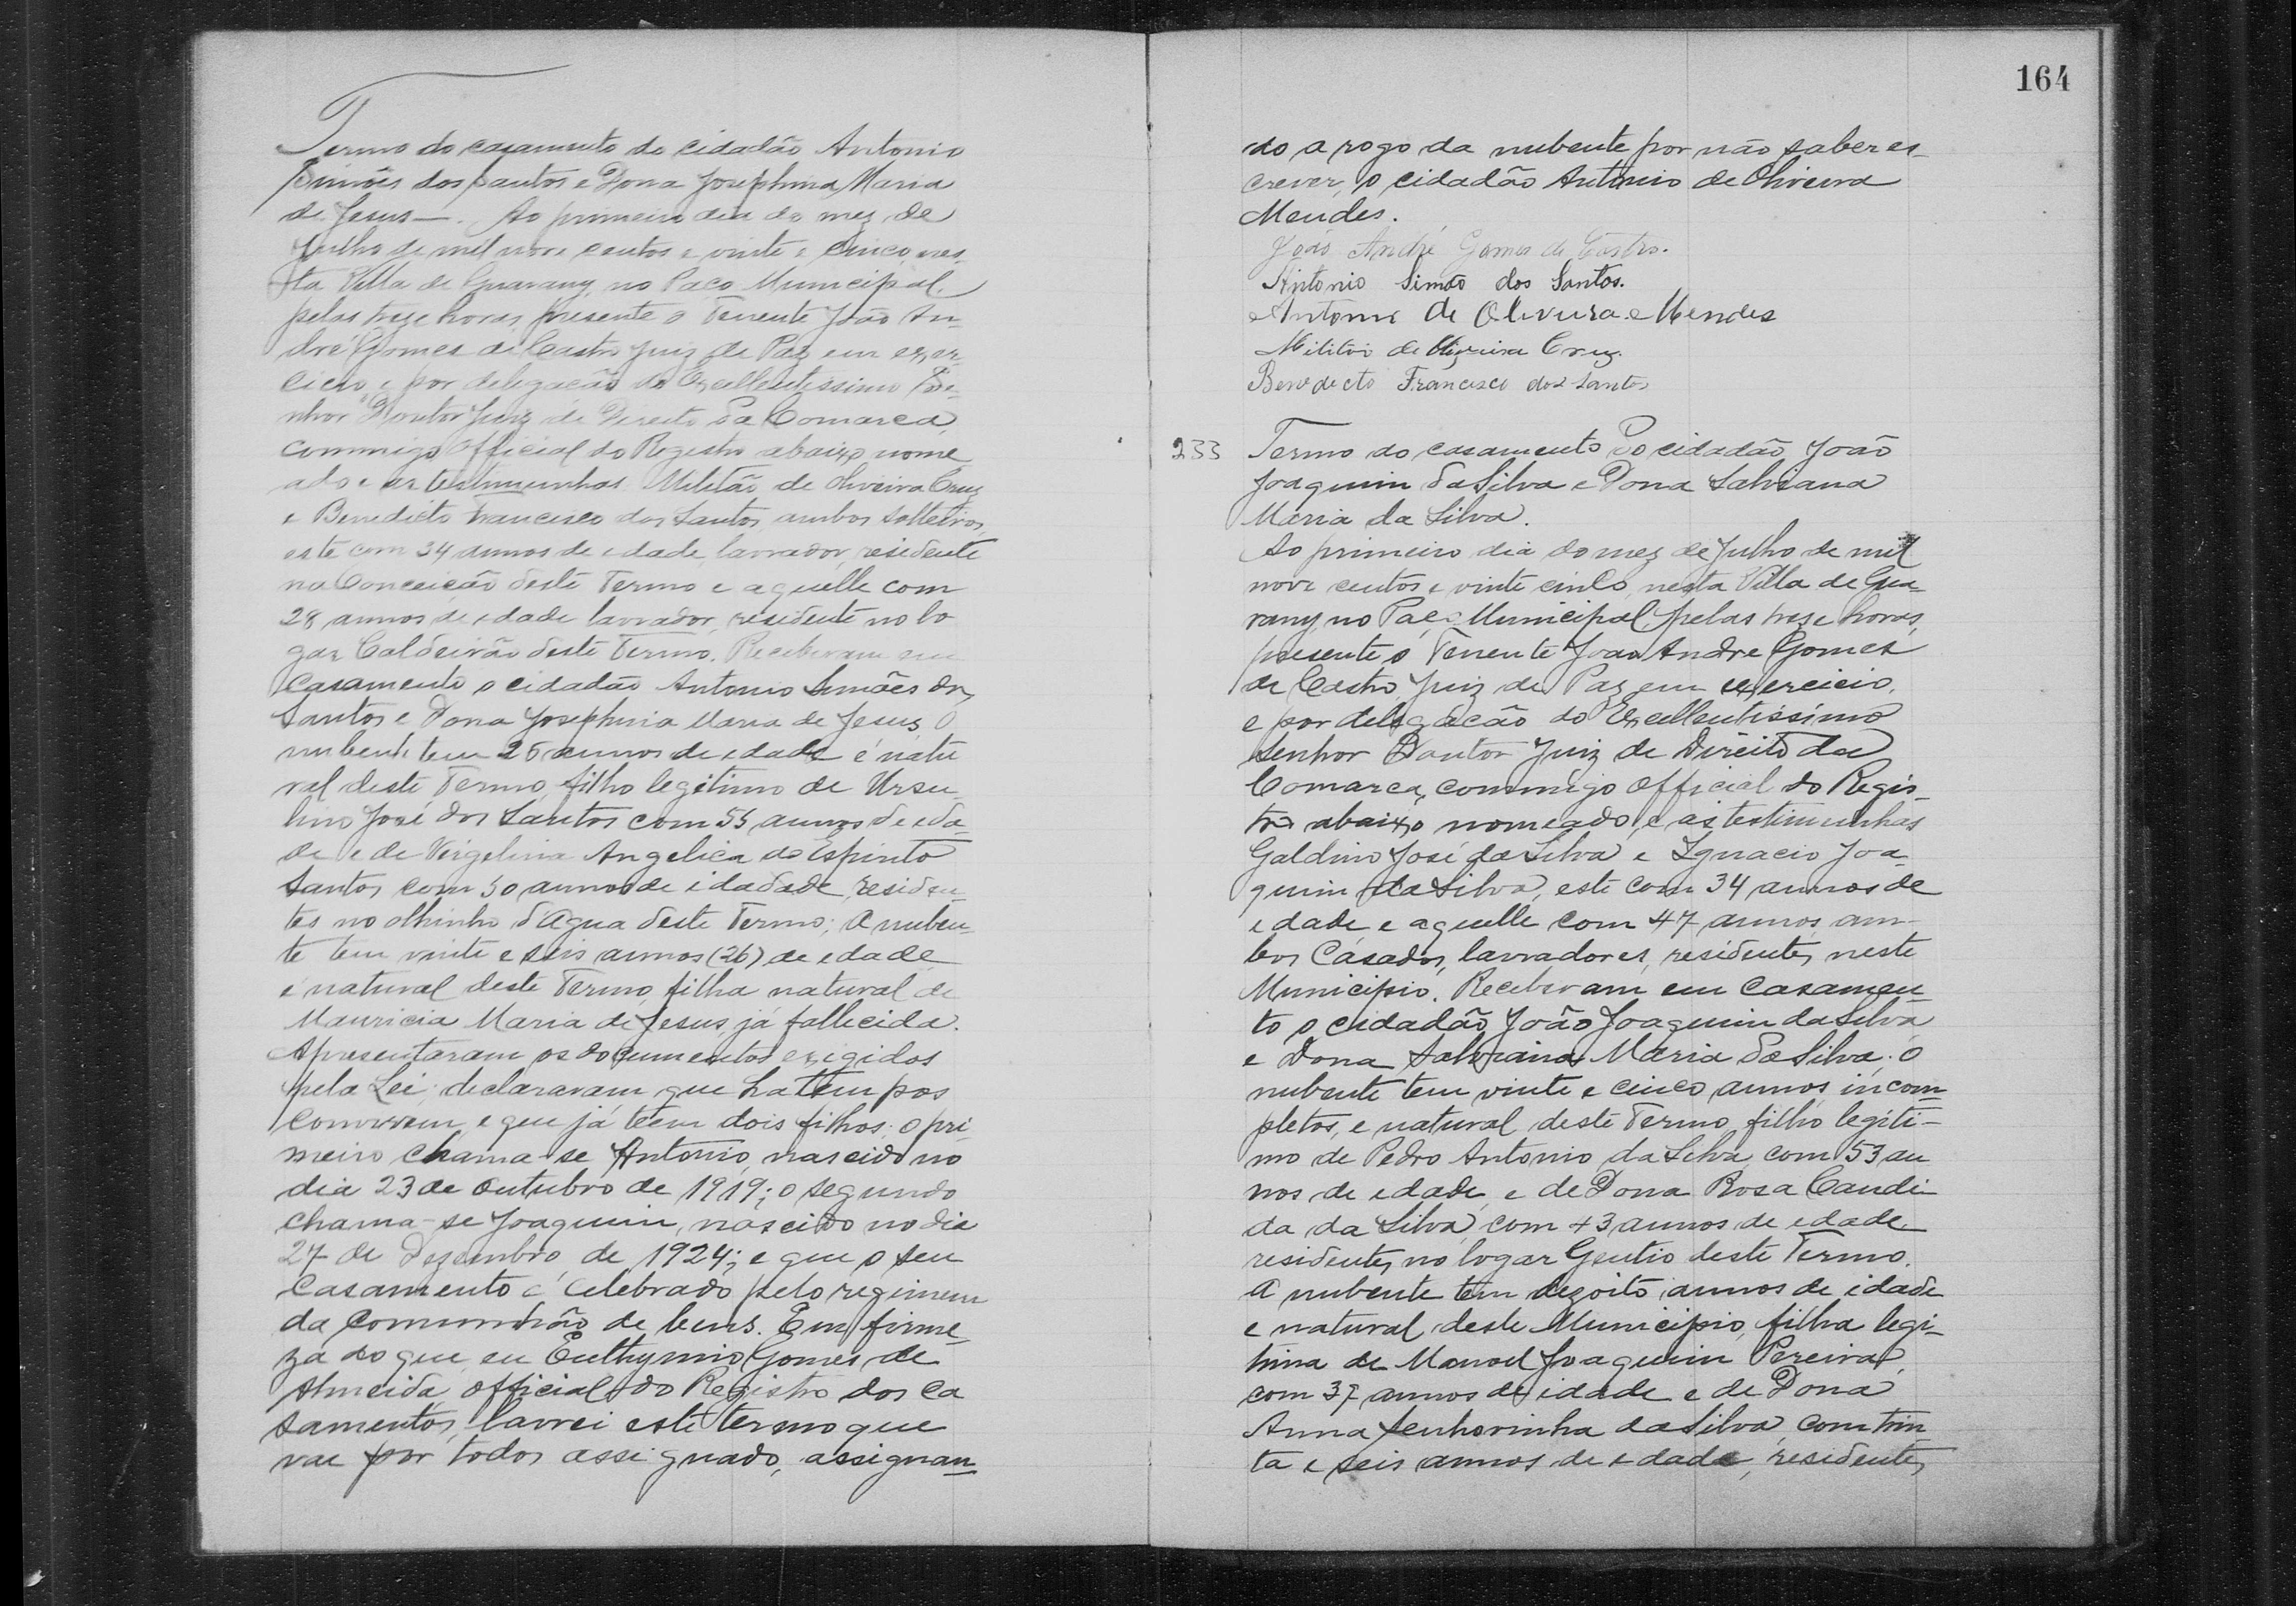 Termo do casamento do cidadão Antonio
Simões dos Santos e Dona Josephina Maria
de Jesus —. Ao primeiro dia do mez de
Julho de mil nove centos e vinte e cinco, nes-
ta Villa de Guarany, no Paço Municipal,
pelas treze horas, presente o Tenente João An-
dré Gomes de Castro Juiz de Paz em exer-
cicio, e por delegação do Excellentissimo Se-
nhor Doutor Juiz de Direito da Comarca,
commigo Official do Registro abaixo nome
ado e as testimunhas Militão de Oliveira Cruz
e Benedicto Francisco dos Santos, ambos solteiros,
este com 34 annos de edade, lavrador, residente
na Conceição deste Termo e aquelle com
28 annos de edade lavrador, residente no lo
gar Caldeirão deste Termo. Receberam em
Casamento o cidadão Antonio Simões dos
Santos e Dona Josephina Maria de Jesus, O
nubente tem 25 annos de edade é natu
ral deste Termo, filho legitimo de Ursu-
lino José dos Santos com 55 annos de eda-
de e de Virgelina Angelica do Espirito
Santos com 50 annos de idadade, residen-
tes no olhinho d'Agua deste Termo; A nuben-
te tem vinte e seis annos (26) de edade
é natural deste Termo, filha natural de
Mauricia Maria de Jesus, já fallecida.
Apresentaram os documentos exigidos
pela Lei; declararam que ha tempos
convivem, e que já teem dois filhos: o pri-
meiro chama-se Antonio, nascido no
dia 23 de Outubro de 1919; o segundo
chama-se Joaquim, nascido no dia
27 de Dezembro de 1924; e que o seu
Casamento é celebrado pelo regimem
da communhão de bens. Em firme-
za do que, eu Euthymio Gomes de
Almeida, official do Registro dos Ca
samentos, lavrei este termo que
vae por todos assignado, assignan-
164
do a rogo da nubente por não saber es-
crever, o cidadão Antonio de Oliveira
Mendes.
João André Gomes de Castro.
Antonio Simão dos Santos.
Antonio de Oliveira Mendes
Militão de Oliveira Cruz.
Benedecto Francisco dos Santos
233 Termo do casamento do cidadão João
Joaquim da Silva e Dona Salviana
Maria da Silva.
Ao primeiro dia do mez de Julho de mil
nove centos e vinte cinco, nesta Villa de Gua-
rany, no Paço Municipal, pelas treze horas,
presente o Tenente João Andre Gomes
de Castro, Juiz de Paz em exercicio,
e por delegacão do Excellentissimo
Senhor Doutor Juiz de Direito da
Comarca, commigo Official do Regis-
tro abaixo nomeado, e as testimunhas
Galdino José da Silva e Ignacio Joa-
quim da Silva, este com 34 annos de
edade, e aquelle com 47 annos, am-
bos Casados, lavradores, residentes neste
Municipio. Receberam em Casamen-
to o cidadão João Joaquim da Silva
e Dona Salviana Maria da Silva; O
nubente tem vinte e cinco annos incom-
pletos, e natural deste Termo, filho legiti-
mo de Pedro Antonio da Silva, com 53 an
nos de edade, e de Dona Rosa Candi-
da da Silva, com 43 annos de edade
residentes no logar Gentio deste Termo.
A nubente tem dezoito annos de idade
e natural deste Municipio, filha legi-
tima de Manoel Joaquim Pereira,
com 37 annos de idade e de Dona
Anna Senhorinha da Silva, com trin
ta e seis annos de edade, residentes